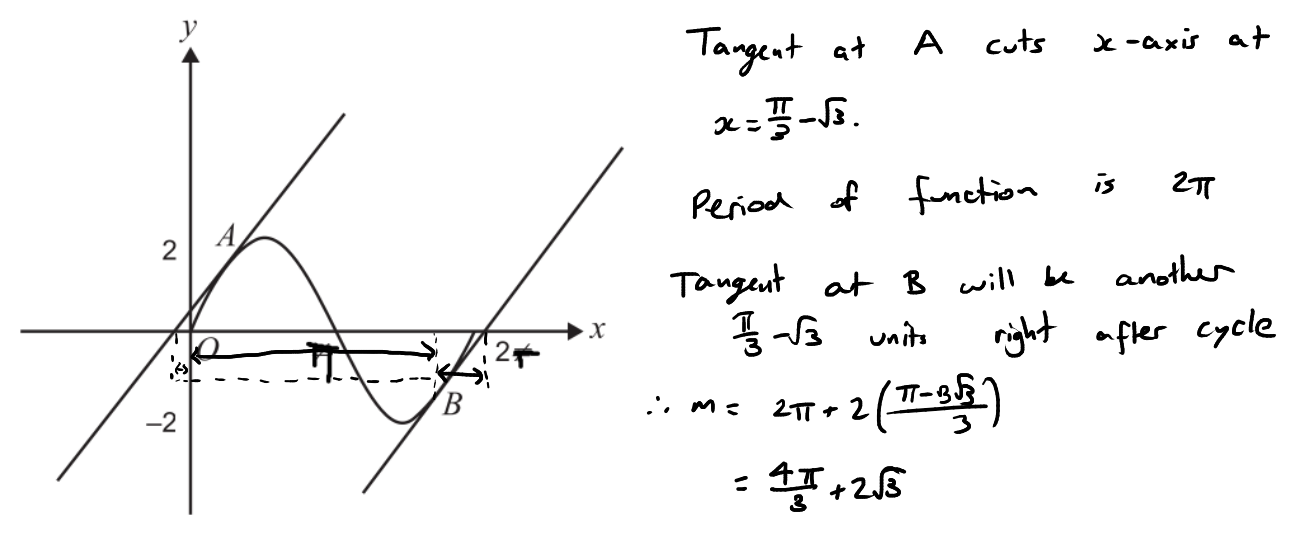 y
2
A
O
π
2π
x
B
−2
Tangent at A cuts x-axis at
x = π/3 − √3.
Period of function is 2π
Tangent at B will be another
π/3 − √3 units right after cycle
∴ m = 2π + 2((π − 3√3)/3)
= 4π/3 + 2√3